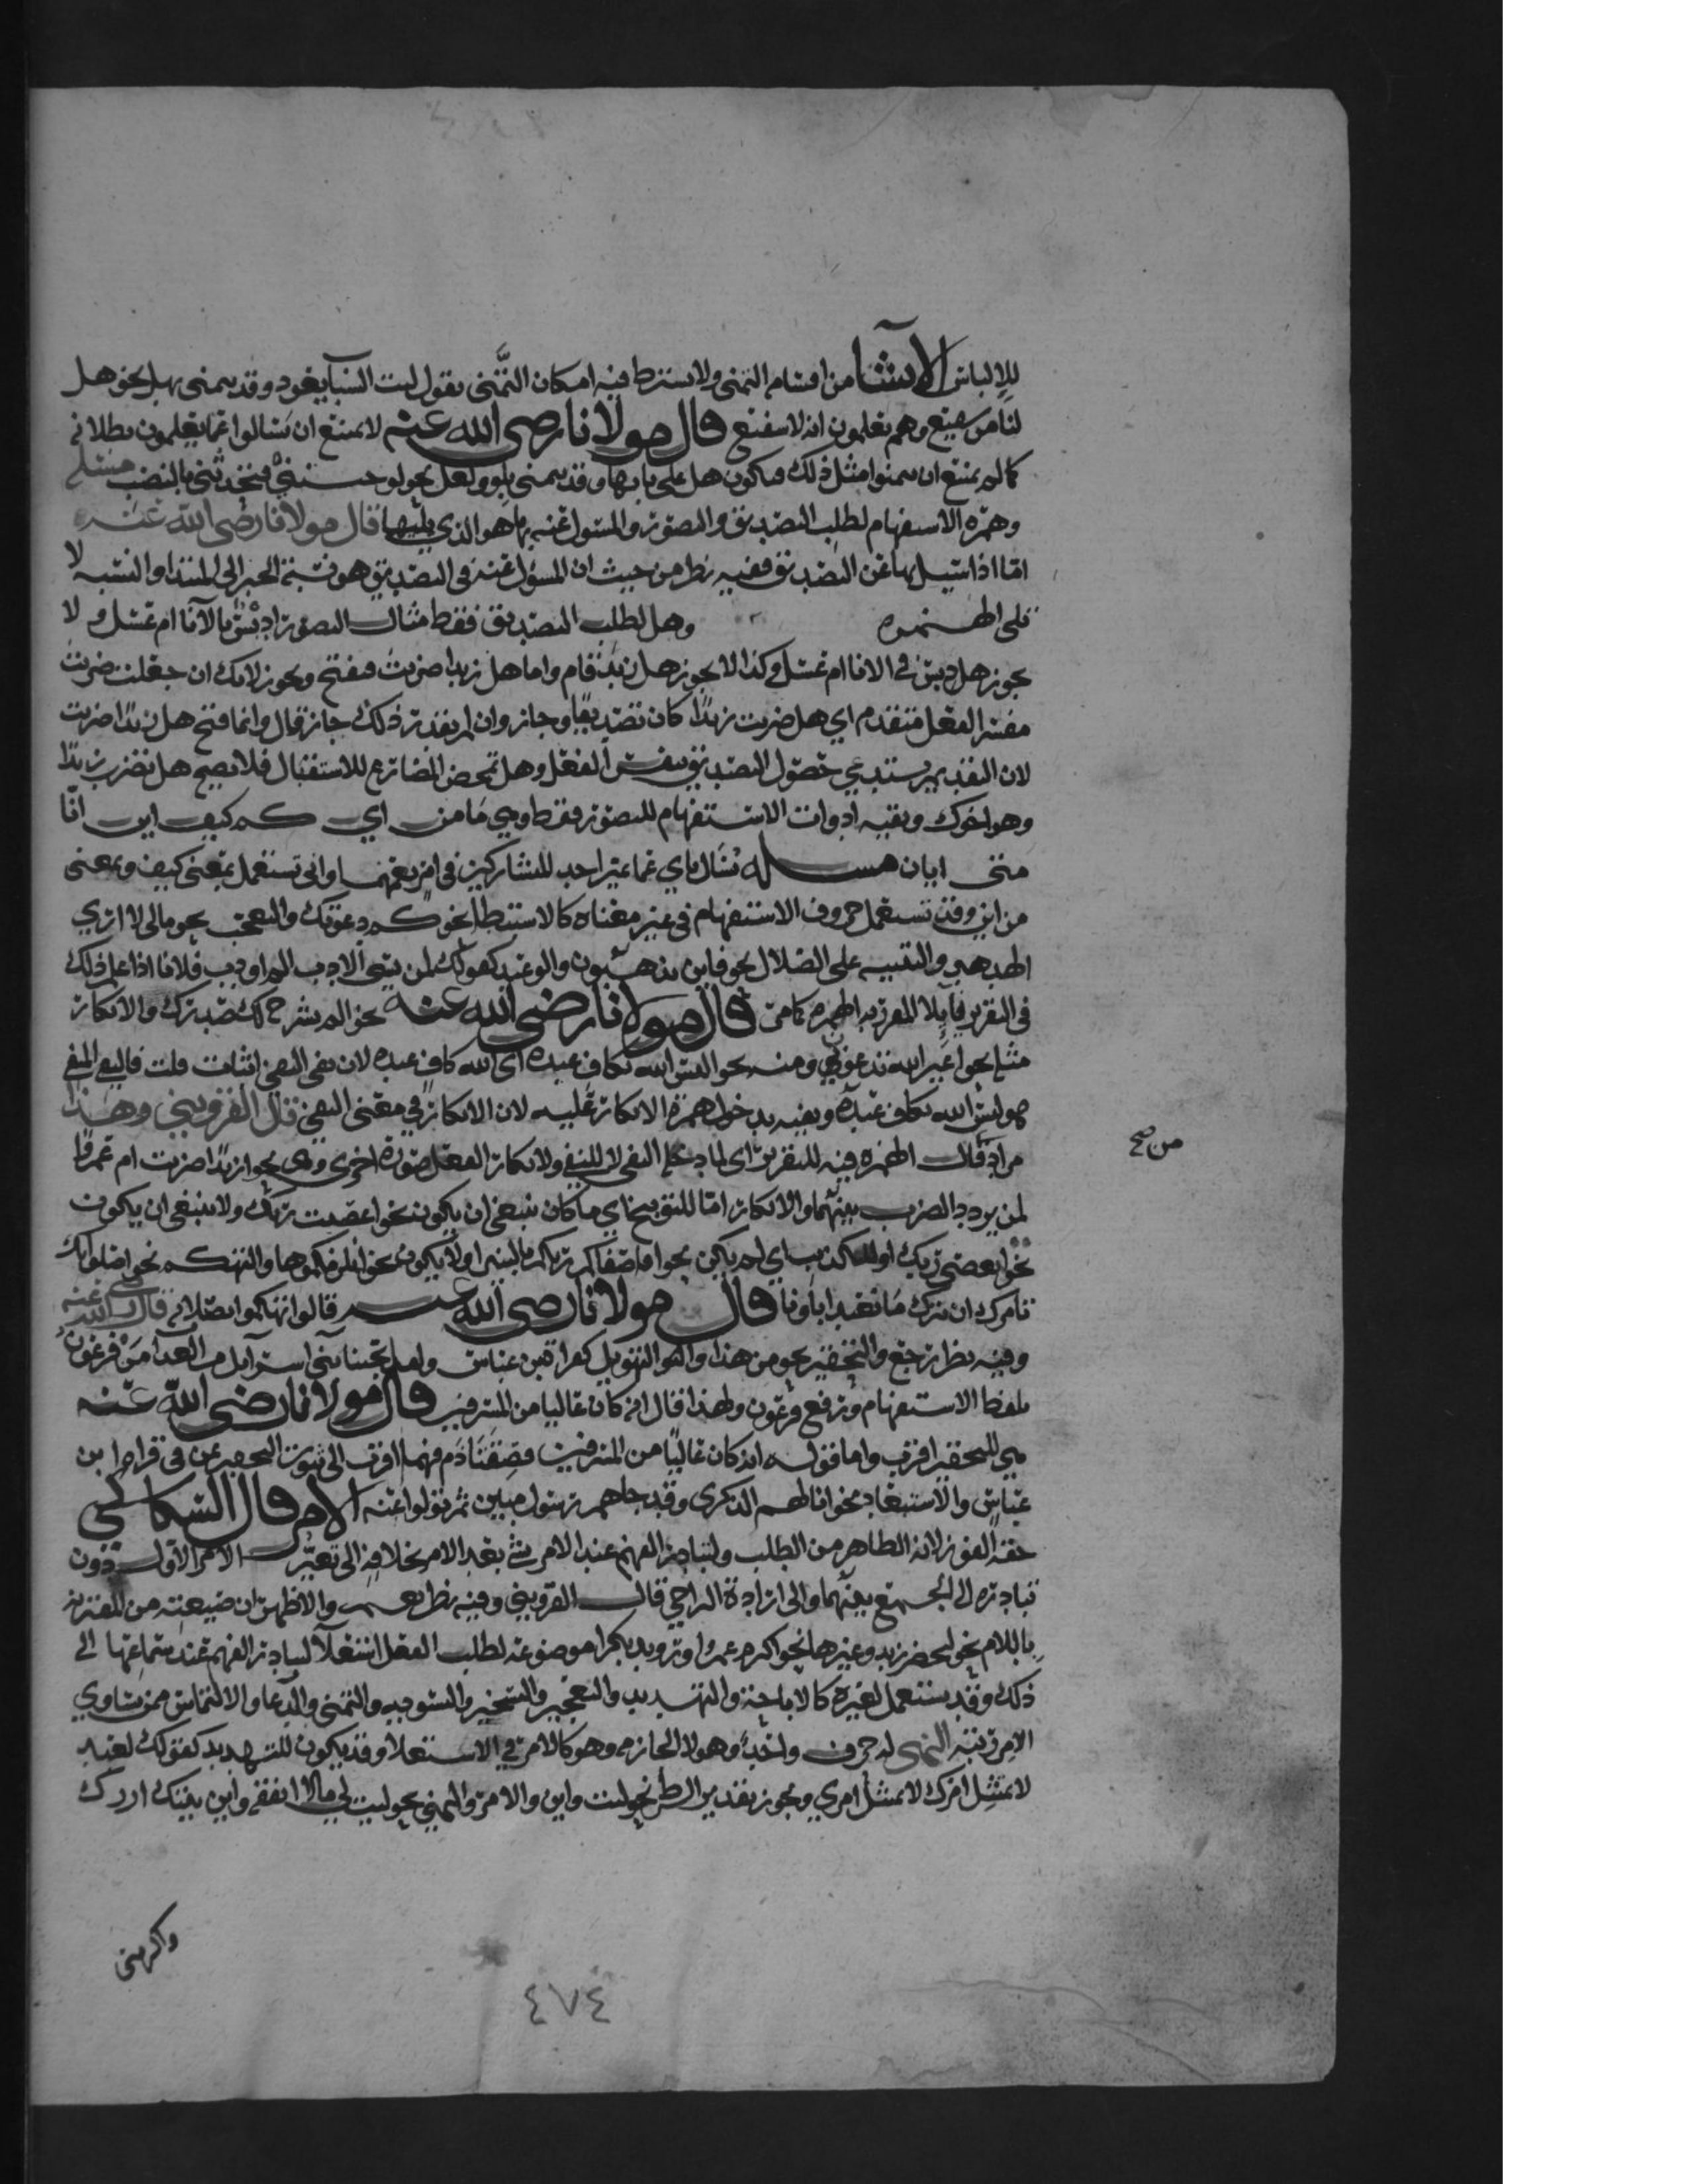 للإلباس الإنشا من اقسام التمني ولا يشترط فيه امكان التمني تقول ليت الشباب يعود وقد يتمنى بهل نحو هل
لنا من شفيع وهم يعلمون انه لا شفيع قال مولانا رضي الله عنه لا يمتنع ان يسالوا عما يعلمون بطلانه
كما لم يمتنع ان يتمنوا مثل ذلك فتكون هل على بابها وقد يتمنى بلو ولعل نحو لو فتحدثني بالنصب مسئلة
وهمزة الاستفهام لطلب التصديق والتصور والمسئول عنه بها هو الذي يليها قال مولانا رضي الله عنه
اما اذا سئل بها عن التصديق ففيه نظر من حيث ان المسئول عنه في التصديق هو نسبة الخبر الى المبتدا والنسبة لا
تلي الهمزه وهل لطلب التصديق فقط مثال التصور ادبس بالانا ام عسل ولا
يجوز هل دبس في الانا ام عسل وكذا لا يجوز هل زيد قام واما هل زيدا ضربت فيقبح ويجوز لانك ان جعلت ضربت
مفسر الفعل متقدم اي هل ضربت زيدا كان تصديقا وجاز وان لم يقدر ذلك جاز قال وانما قبح هل زيدا ضربت
لان التقديم يستدعي حصول التصديق بنفس الفعل وهل تمحض المضارع للاستقبال فلا يصح هل تضرب زيدا
وهو اخوك وبقيه ادوات الاستفهام للتصور فقط وهي ما من اي كم كيف اين انا
متى ايان مسئله نسال باي عما يميز احد المتشاركين في امر يعمهما وانى تستعمل بمعنى كيف وبمعنى
من اين وقد تستعمل حروف الاستفهام في غير معناه كالاستبطا نحو كم دعوتك والتعجب نحو مالي لا ارى
الهدهد والتنبيه على الضلال نحو فاين تذهبون والوعيد كقولك لمن يسي الادب الم اودب فلانا اذا علم ذلك
في التقرير المقرر به الهمزه كما مر قال مولانا رضي الله عنه نحو الم نشرح لك صدرك والانكار
مثله نحو اغير الله تدعون ومنه نحو اليس الله بكاف عبده اى الله كاف عبده لان نفي النفي اثبات قلت
هو ليس الله بكاف عبده ونفيه بدخول همزة الانكار عليه لان الانكار في معنى النفي قال القزويني وهذا
مراد من قال الهمزه فيه للتقرير اى لما دخله النفي لا للنفي ولانكار الفعل صورة اخرى وهي نحو ازيدا ضربت ام عمرا
لمن يردد الضرب بينهما والانكار اما للتوبيخ اي ما كان ينبغي ان يكون نحو اعصيت ربك ولا ينبغي ان يكون
نحو اتعصي ربك او للتكذيب اي لم يكن نحو افاصفاكم ربكم بالبنين او لا يكون نحو انلزمكموها والتهكم نحو اصلواتك
تامرك ان نترك ما يعبد اباونا قال مولانا رضي الله عنه قالوا تهكموا بصلاته قال رضي الله عنه
وفيه نظر والتحقير نحو من هذا والتهويل كقراة بن عباس ولقد نجينا بني اسرآيل من العذاب من فرعون
بلفظ الاستفهام ورفع فرعون ولهذا قال انه كان عاليا من المسرفين قال مولانا رضي الله عنه
هي للتحقير اقرب واما قوله انه كان عاليا من المسرفين فصفتا ذم فهما اقرب الى التحقير من في قراة ابن
عباس والاستبعاد نحو انى لهم الذكرى وقد جاهم رسول مبين ثم تولوا عنه الامر قال السكاكي
حقه الفور لانه الظاهر من الطلب ولتبادر الفهم عند الامر بشي بعد الامر بخلافه الى تغيير الامر الاول دون
تبادره الى الجمع بينهما والى ارادة التراخي قال القزويني وفيه نظر والاظهر ان صيغته من المقترنه
باللام نحو ليحضر زيد وغيرها نحو اكرم عمرا ورويد بكرا موضوعة لطلب الفعل استعلا لتبادر الفهم عند سماعها الى
ذلك وقد يستعمل لغيره كالاباحة والتهديد والتعجيز والتسخير والتسويه والتمني والدعا والالتماس ممن يساوي
الامر رتبة النهي له حرف واحد وهو لا الجازمه وهو كالامر في الاستعلا وقد يكون للتهديد كقولك لعبد
لا يمتثل امرك لا تمتثل امري ويجوز تقدير الشرط نحو ليت واين والامر والنهي نحو ليت لي مالا انفقه واين بيتك ازرك
من صح
واكرمني
٤٧٤